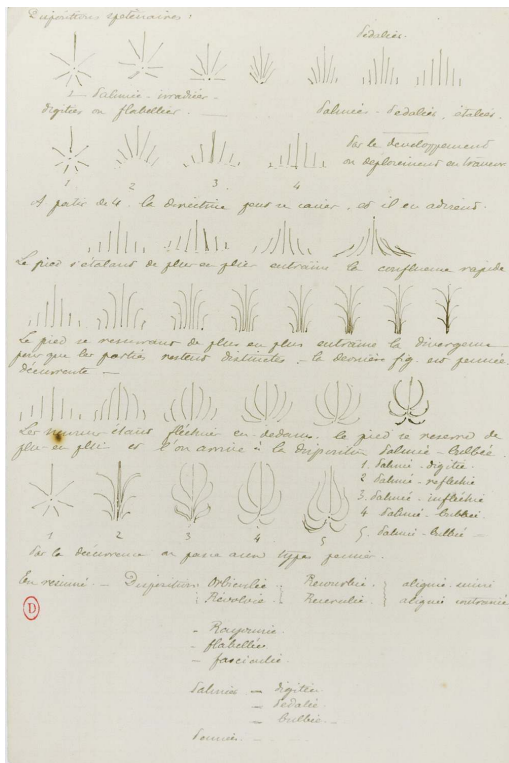 Dispositions septénaires :
Pédaliée.
1 — Palmée - irradiée -
digitées ou flabellées.
Palmées - Pédaliées, étalées.
Par le développement
ou déploiement en travers
1 2 3 4
A partir de 4. la directrice peut se et il en advient.
Le pied s'étalant de plus en plus entraîne la confluence rapide
Le pied se resserrant de plus en plus entraîne la divergence
pour que les parties restent distinctes - la dernière fig. est pennée
décurrente —
Les étant fléchies en dedans. le pied se resserre de
plus en plus et l'on arrive à la disposition Palmée - bulbée.
1. Palmée - digitée
2 Palmée - réfléchie
3. Palmée - infléchie
4 Palmée - bulbée.
5. Palmée - bulbée —
1 2 3 4 5
Par la décurrence on passe aux types pennés.
En résumé. — Dispositions Orbiculée
Révolvée
aliquie
aliquie
-
- flabellée
- fasciculée
Palmée — digitée
— Pédalée
— bulbée —
Pennée. —
D